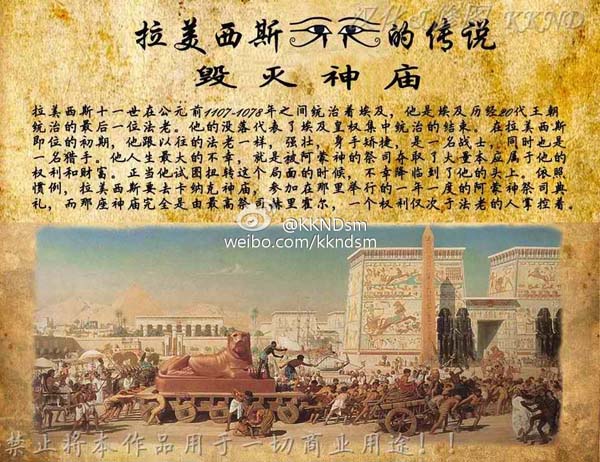 汉化/修图 KKND
拉美西斯的传说
毁灭神庙
拉美西斯十一世在公元前1107-1078年之间统治着埃及，他是埃及历经20代王朝
统治的最后一位法老。他的没落代表了埃及皇权集中统治的结束。在拉美西斯
即位的初期，他跟以往的法老一样，强壮，身手矫捷，是一名战士，同时也是
一名猎手。他人生最大的不幸，就是被阿蒙神的祭司夺取了大量本应属于他的
权利和财富。正当他试图扭转这个局面的时候，不幸降临到了他的头上。依照
惯例，拉美西斯要去卡纳克神庙，参加在那里举行的一年一度的阿蒙神祭司典
礼，而那座神庙完全是由最高祭司 赫里霍尔，一个权利仅次于法老的人掌控着。
@KKNDsm
weibo.com/kkndsm
禁止将本作品用于一切商业用途！！